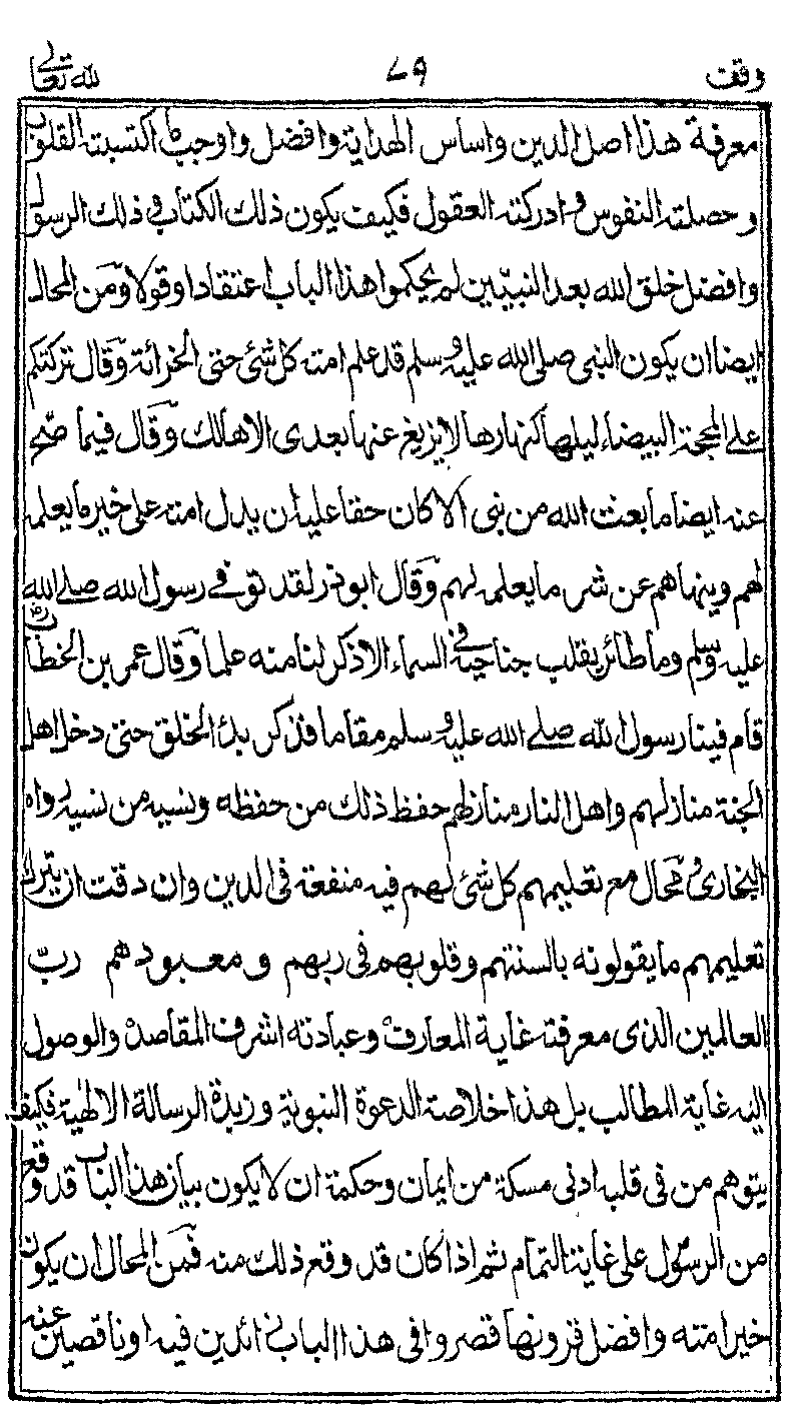 وقف ٧٩ لله تعالى
معرفة هذا اصل الدين واساس الهداية وافضل واوجب ما اكتسبته القلوب
و حصلته النفوس و ادركته العقول فكيف يكون ذلك الكتاب و ذلك الرسول
وافضل خلق الله بعد النبيين لم يحكموا هذا الباب اعتقادا وقولا ومن المحال
ايضا ان يكون النبى صلى الله عليه وسلم قد علم امته كل شئ حتى الخرائة وقال تركتكم
على المحجة البيضاء ليلها كنهارها لا يزيغ عنها بعدى الا هالك وقال فيما صح
عنه ايضا ما بعث الله من نبى الا كان حقا عليه ان يدل امته على خير ما يعلمه
لهم وينهاهم عن شر ما يعلمه لهم وقال ابو ذر لقد توفے رسول الله صلے الله
عليه وسلم وما طائر يقلب جناحيه فى السماء الا ذكر لنا منه علما وقال عمر بن الخطاب رض
قام فينا رسول الله صلے الله عليه وسلم مقاما فذكر بدأ الخلق حتى دخل اهل
الجنة منازلهم واهل النار منازلهم حفظ ذلك من حفظه ونسيه من نسيه رواه
البخارى ومحال مع تعليمهم كل شئ لهم فيه منفعة فى الدين وان دقت ان يترك
تعليمهم ما يقولونه بالسنتهم وقلوبهم فى ربهم ومعبودهم ربّ
العالمين الذى معرفته غاية المعارف وعبادته اشرف المقاصد والوصول
اليه غاية المطالب بل هذا خلاصة الدعوة النبوية وزبدة الرسالة الالهٰية فكيف
يتوهم من فى قلبه ادنى مسكة من ايمان وحكمة ان لا يكون بيان هذا الباب قد وقع
من الرسول على غاية التمام ثم اذا كان قد وقع ذلك منه فمن المحال ان يكون
خير امته وافضل قرونها قصروا فى هذا الباب زائدين فيه او ناقصين عنه